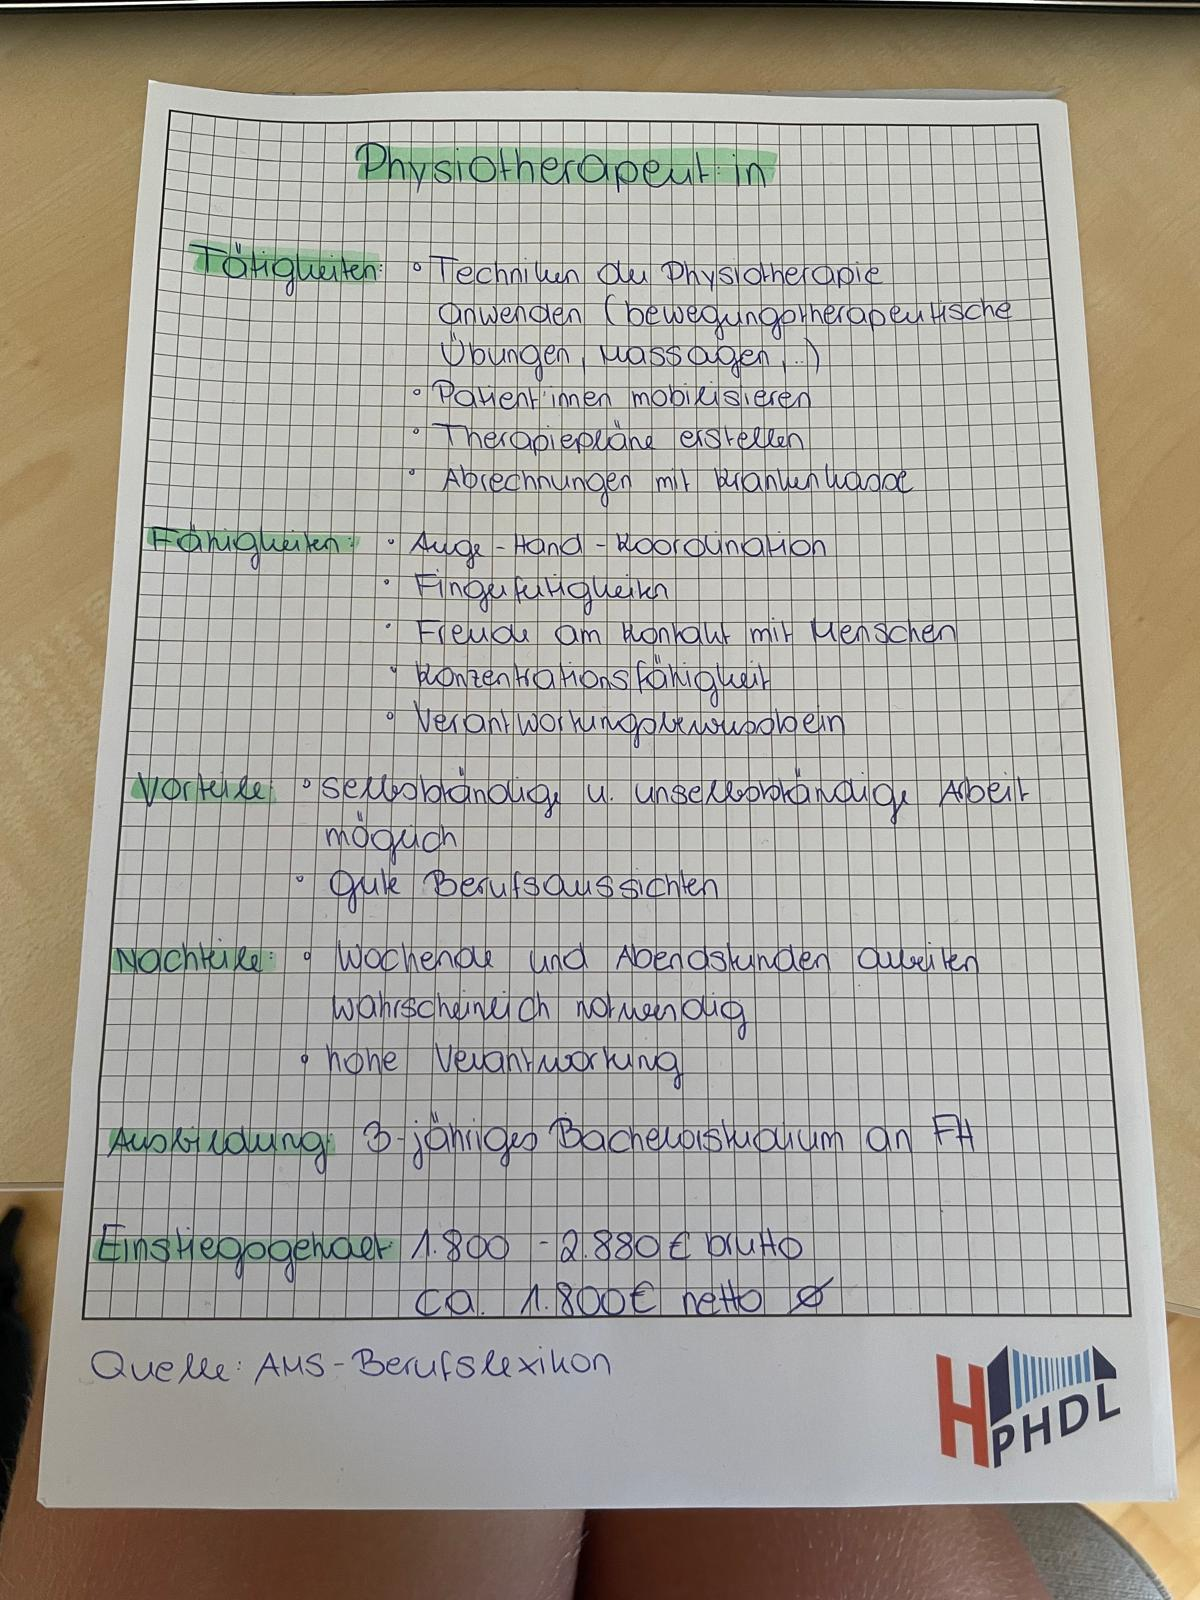 Physiotherapeut:in
Tätigkeiten: ° Techniken der Physiotherapie
anwenden (bewegungstherapeutische
Übungen, Massagen,...)
° Patient:innen mobilisieren
° Therapiepläne erstellen
° Abrechnungen mit Krankenkasse
Fähigkeiten: ° Auge-Hand-Koordination
° Fingerfertigkeiten
° Freude am Kontakt mit Menschen
° Konzentrationsfähigkeit
° Verantwortungsbewusstsein
Vorteile: ° selbstständige u. unselbstständige Arbeit
möglich
° gute Berufsaussichten
Nachteile: ° Wochende und Abendstunden arbeiten
wahrscheinlich notwendig
° hohe Verantwortung
Ausbildung: 3-jähriges Bachelorstudium an FH
Einstiegsgehalt: 1.800 - 2.880€ brutto
ca. 1.800€ netto ø
Quelle: AMS-Berufslexikon
H PHDL